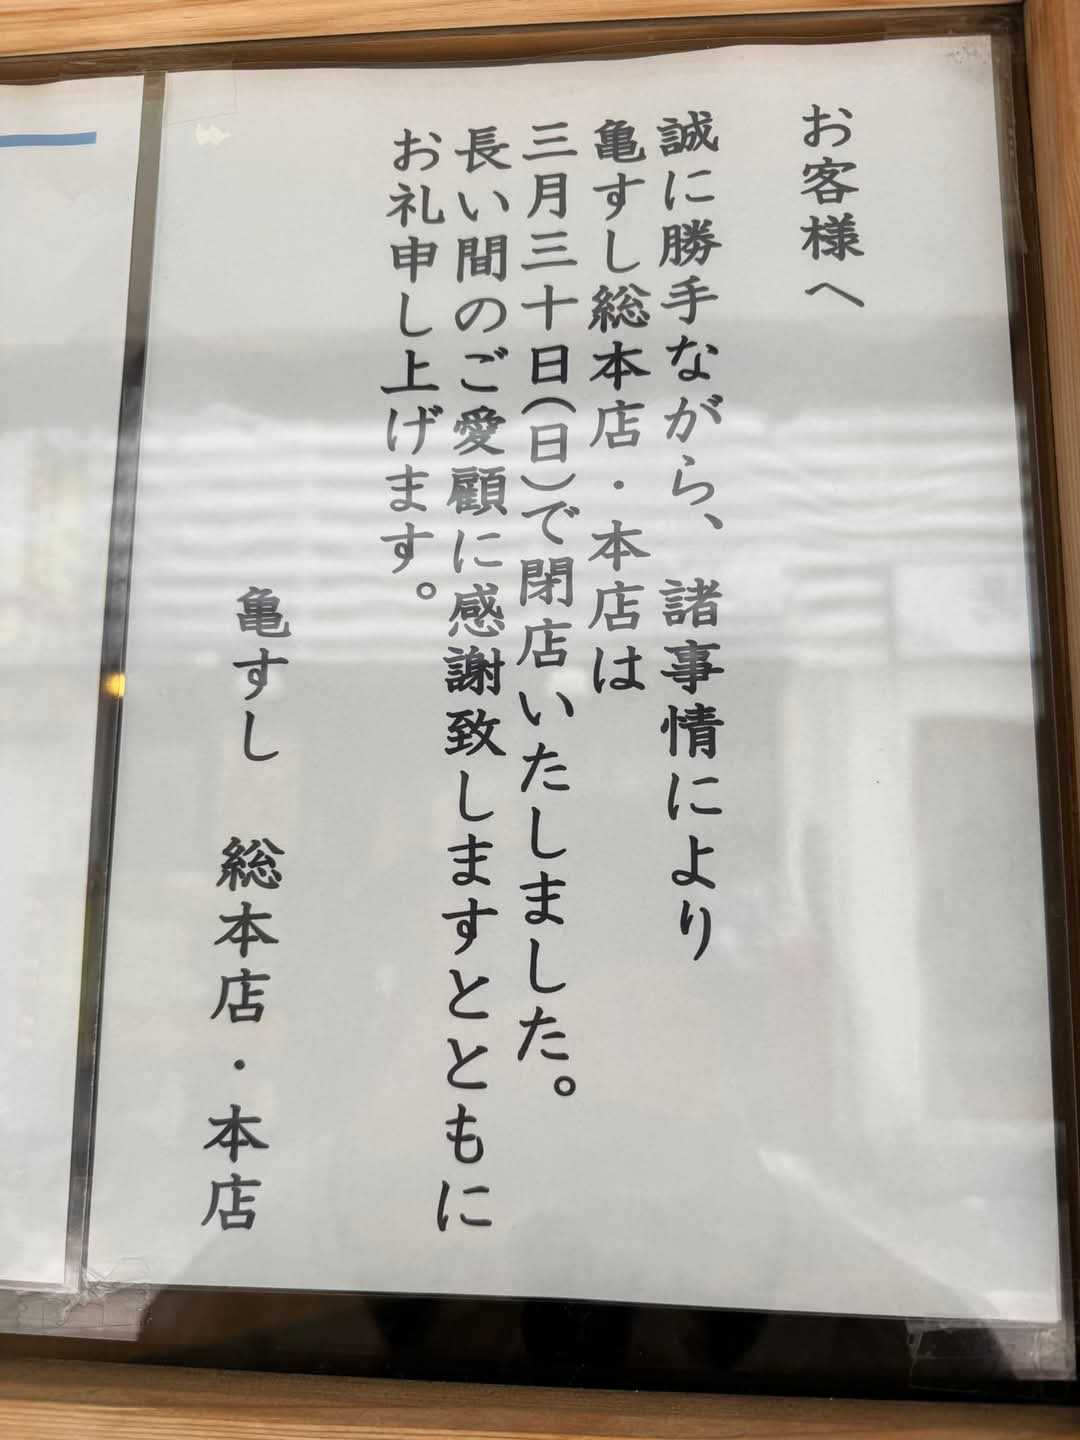 お客様へ
誠に勝手ながら、諸事情により
亀すし総本店・本店は
三月三十日(日)で閉店いたしました。
長い間のご愛顧に感謝致しますとともに
お礼申し上げます。
亀すし 総本店・本店